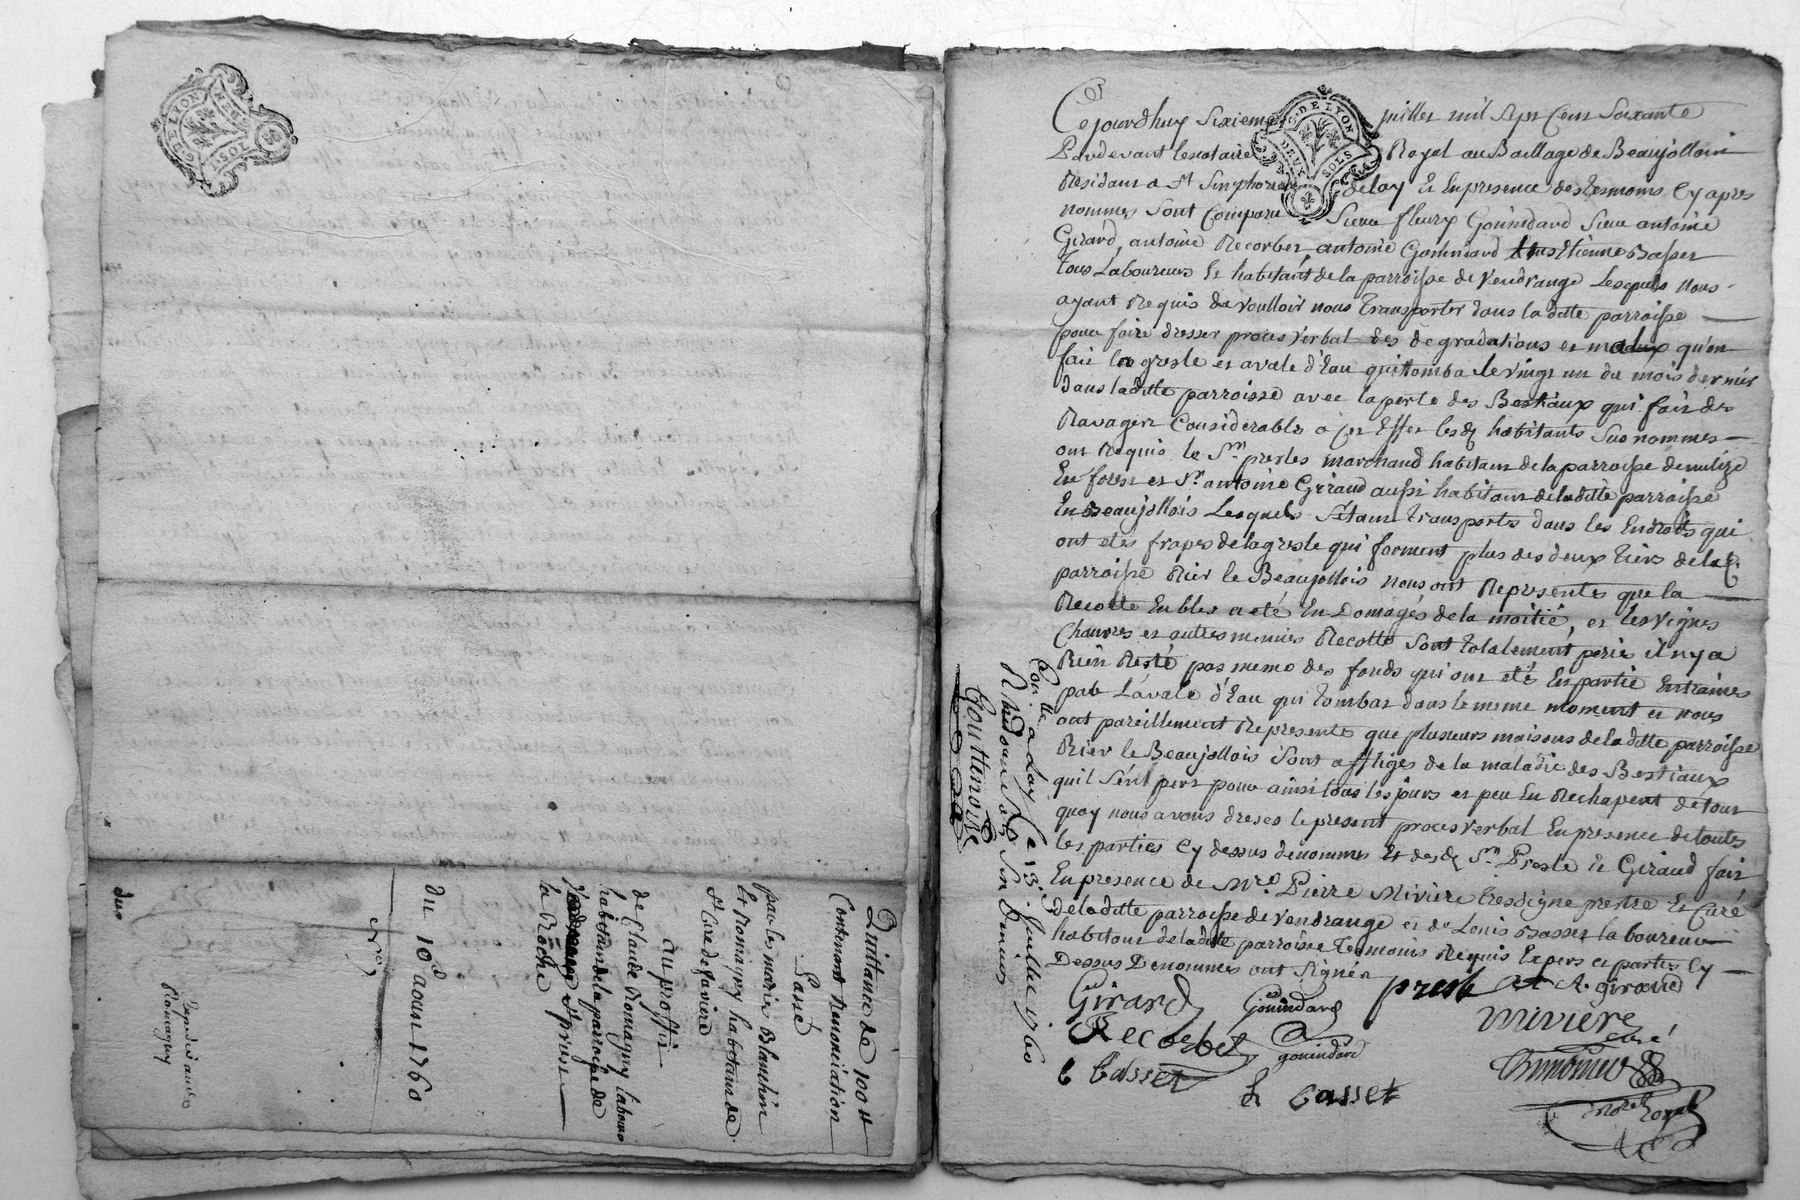 G. DE LYON
DEUX SOLS
Quittance de 100 ₶
Contenant Renonciation
passé
par les marie Blanchin
et Romagny habitans de
St Cire de favière
au proffit
de Claude Romagny labour
habitant de la parroisse de
St priest
la Roche
du 10e aoust 1760
Cejourdhuy sixieme juillet mil sept cent soixante
Pardevant le notaire Royal au Baillage de Beaujollois
Residant a St Simphorien de lay et en presence des temoins cy apres
nommes sont comparu Sieur fleury Gouindard Sieur antoine
Girard, antoine Recorbet, antoine Gouindard Etienne Basset
tous Laboureurs et habitant de la parroisse de Vendrange Lesquels nous
ayant Requis de voulloir nous transporter dans la ditte parroisse
pour faire dresser proces verbal des degradations et qu'on
fait la gresle et avale d'Eau qui tomba le vingt un du mois dernier
dans laditte parroisse avec la perte des Bestiaux qui fait de
Ravager Considerable a cet Effet lesd habitants sus nommes
ont Requis le Sr presles marchand habitant de la parroisse de nulize
En forest et Sr antoine Giraud aussi habitant de laditte parroisse
En Beaujollois Lesquels s'étant transportes dans les Endroits qui
ont etes frapes de la gresle qui forment plus des deux tiers de lad
parroisse Rier le Beaujollois nous ont Representes que la
Recolte En bles a eté En Domagés de la moitié, et les vignes
Chanvres et autres menues Recolte sont totalement perie il n'y a
Rien Resté pas meme des fonds qui ont eté En partie Entraines
par L'avale d'Eau qui tombat dans le meme moment et nous
ont pareillement Represente que plusieurs maisons de la ditte parroisse
Rier le Beaujollois sont affliges de la maladie des Bestiaux
qu'il s'ént pert pour ainsi tous les jours et peu En Rechapent de tout
quoy nous avons dreses le present proces verbal En presence de toutes
les parties Cy dessus denommes Et desd Sr Presle et Giraud fait
En presence de Mre Pierre Mivière tres digne prestre et Curé
de laditte parroisse de vendrange et de Louis Basset laboureur
habitant de laditte parroisse temoins Requis Expers et parties Cy
Dessus Denommes ont signér
Girard Gouindard presle A. giraud
Recorbet gouindard Mivière curé
Basset
Basset
not Royal
Conlle a Lay Le 13 Juillet 1760
Gouttenoire